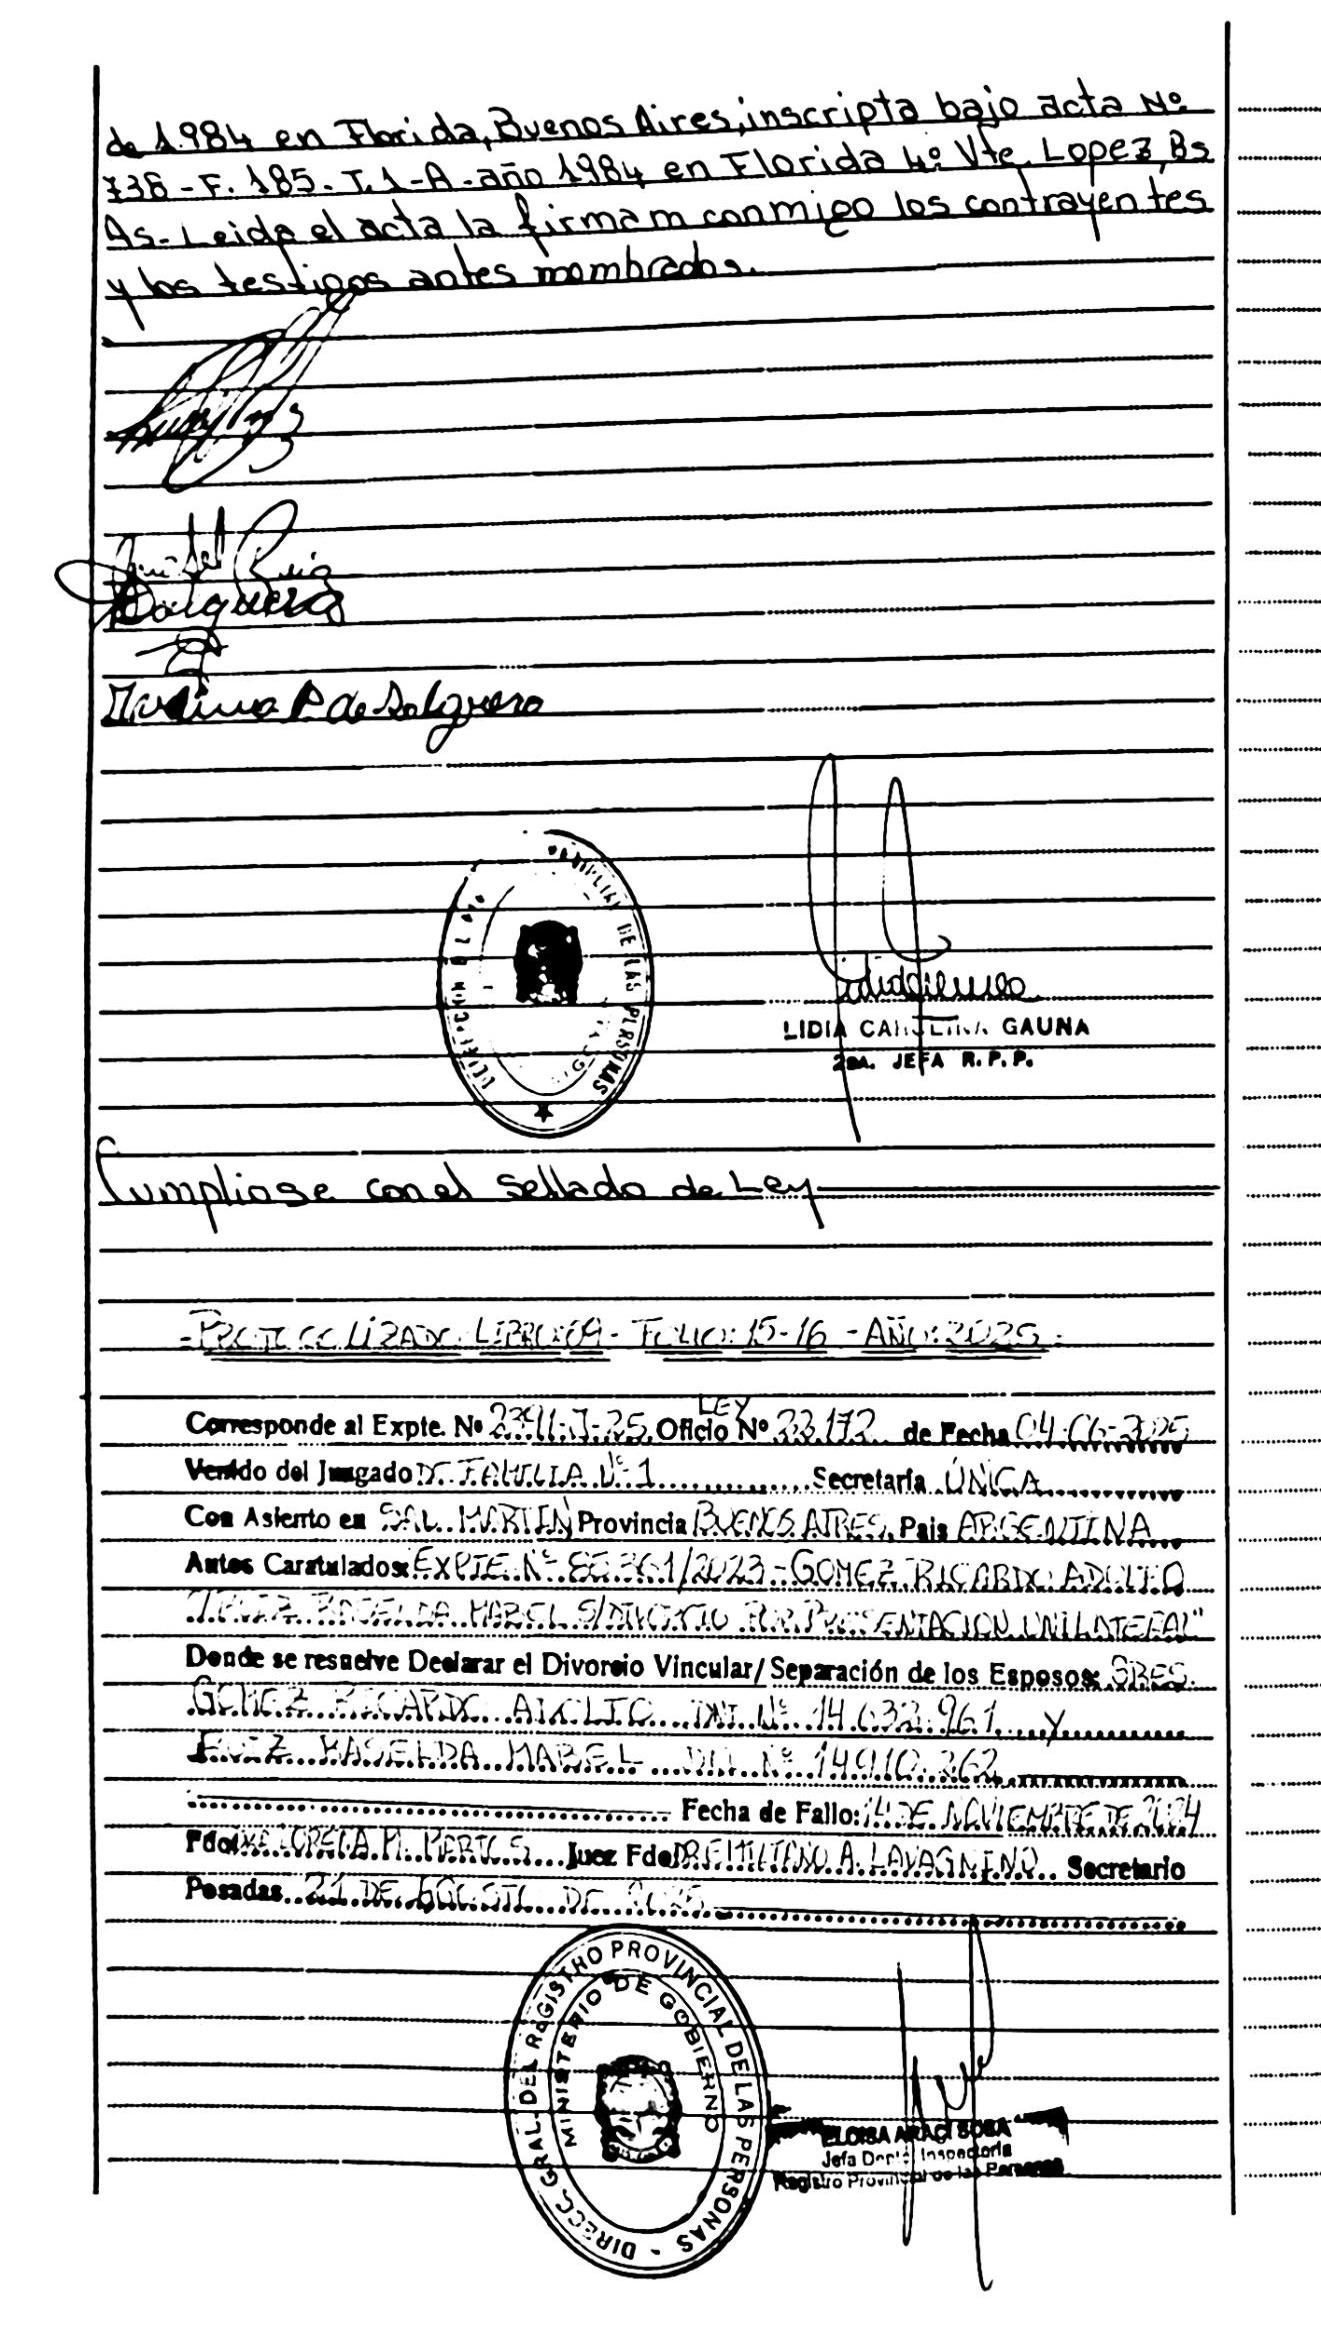 de 1.984 en Florida, Buenos Aires, inscripta bajo acta Nº
736 - F. 185 - T. 1-A - año 1984 en Florida 4º Vte. Lopez, Bs
As - Leida el acta la firmam conmigo los contrayentes
y los testigos antes mombrados.
Ruiz
Salguero
P. de Salguero
DE LAS PERSONAS
LIDIA CAROLINA GAUNA
2DA. JEFA R.P.P.
Cumpliose con el sellado de Ley
- PROTOCOLIZADO LIBRO: 09 - FOLIO: 15-16 - AÑO: 2025 -
LEY
Corresponde al Expte. Nº 2391-J-25 Oficio Nº 22.172 de Fecha 04-06-2025
Venido del Juzgado DE FAMILIA Nº 1 Secretaría ÚNICA
Con Asiento en SAN MARTIN Provincia BUENOS AIRES País ARGENTINA
Autos Caratulados: EXPTE. Nº /2023 - GOMEZ RICARDO ADOLFO
MABEL S/DIVORCIO POR PRESENTACION UNILATERAL"
Donde se resuelve Declarar el Divorcio Vincular/ Separación de los Esposos: SRES.
GOMEZ RICARDO ADOLFO DNI Nº 14.632.961 y
MABEL DNI Nº 14.910.262
Fecha de Fallo: 14 DE NOVIEMBRE DE 2024
Fdo. Juez Fdo. DR EMILIANO A. LAVAGNINO Secretario
Posadas 21 DE AGOSTO DE 2025
DIRECC. GRAL. DEL REGISTRO PROVINCIAL DE LAS PERSONAS -
MINISTERIO DE GOBIERNO
ELOISA ARACI SOSA
Jefa Dpto. Inspectoría
Registro Provincial de las Personas